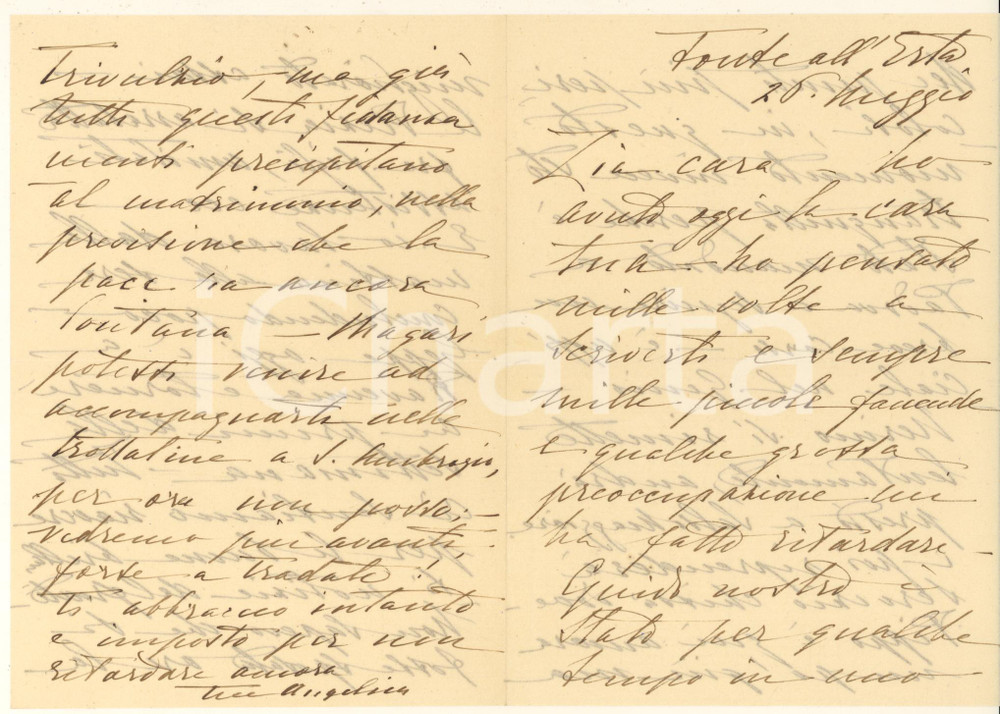 Fonte all'Erta
26. Maggio
Zia cara - ho
avuto oggi la cara
tua - ho pensato
mille volte a
scriverti e sempre
mille piccole faccende
e qualche grossa
preoccupazione mi
ha fatto ritardare -
Guido nostro è
stato per qualche
tempo in uno
Trivulzio, - ma già
tutti questi fidanza
menti precipitano
al matrimonio, nella
previsione che la
pace sia ancora
lontana - Magari
potessi venire ad
accompagnarti nelle
trottatine a S. Ambrogio,
per ora non posso; -
vedremo più avanti,
forse a Tradate;
ti abbraccio intanto
e imposto per non
ritardare ancora
tua Angelica
iCharta